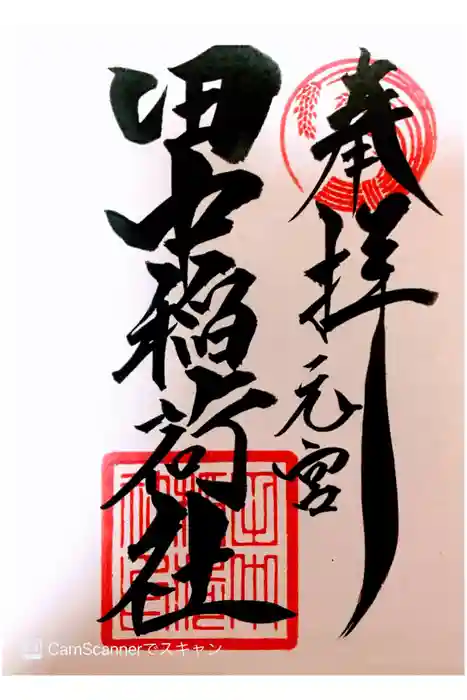 奉拝
元宮
田中稲荷社
CamScannerでスキャン